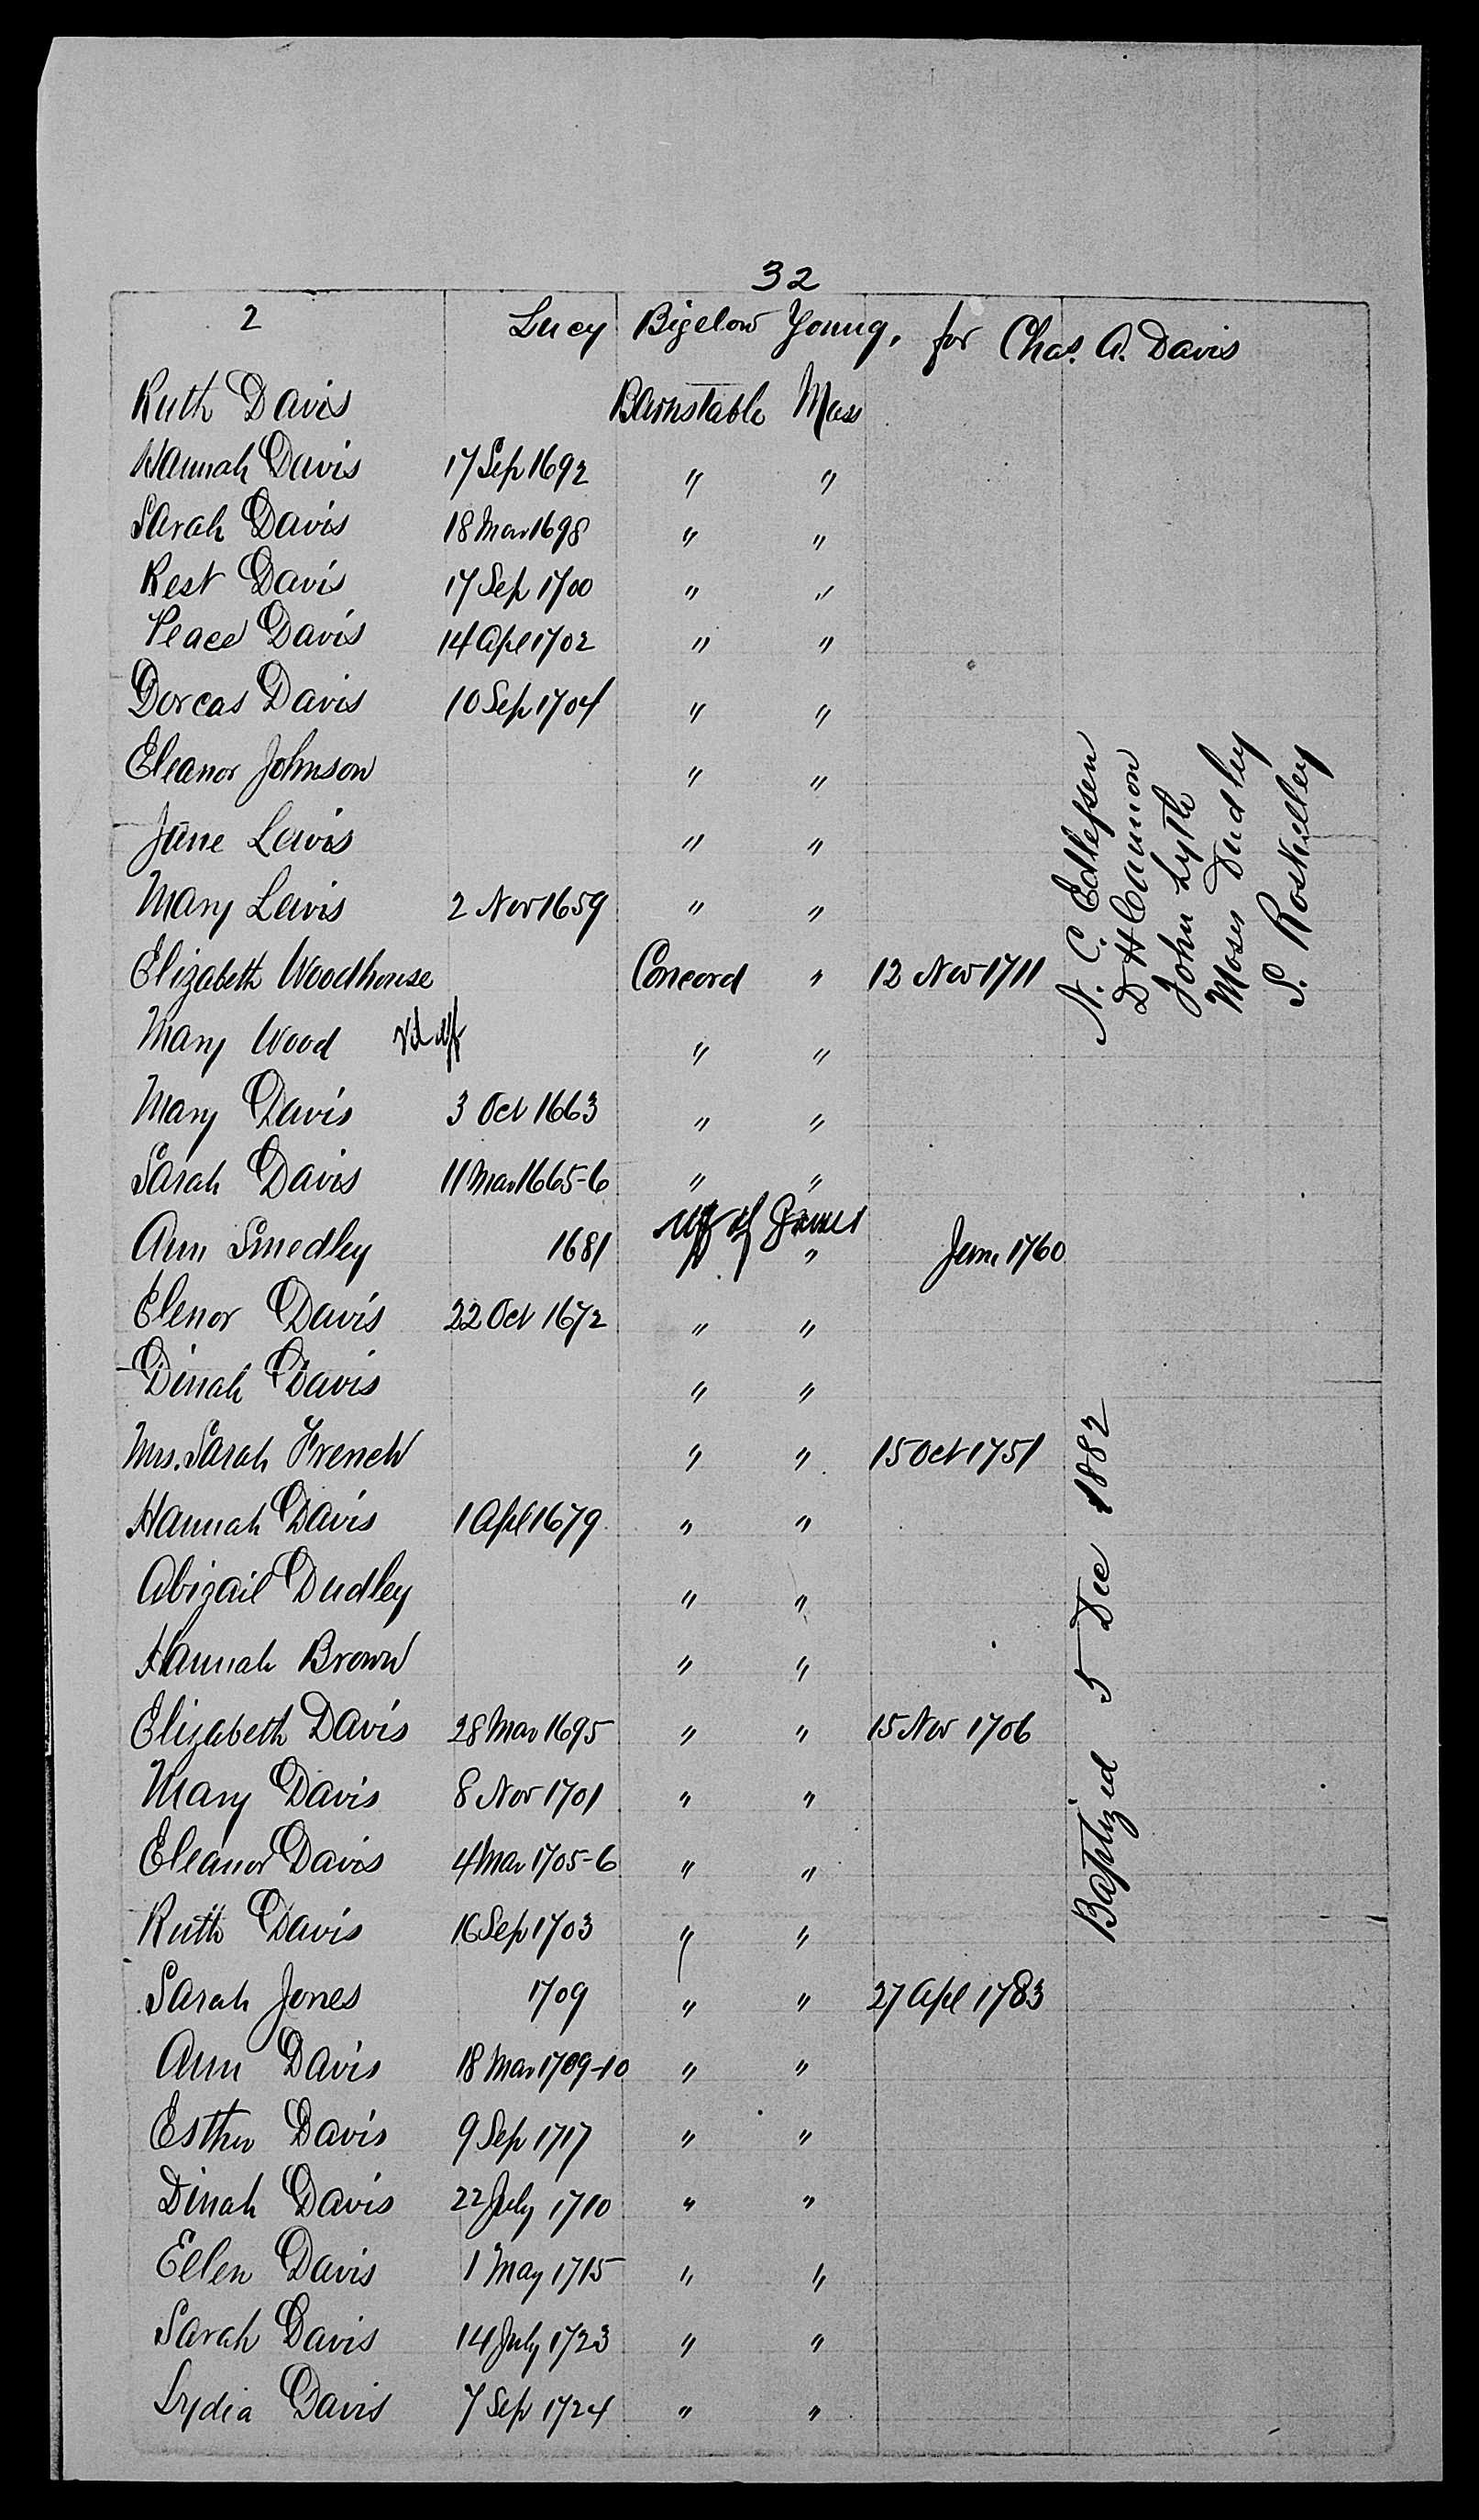 32
2 Lucy Bigelow Young, for Chas. A. Davis
Ruth Davis Barnstable Mass
Hannah Davis 17 Sep 1692 " "
Sarah Davis 18 Mar 1698 " "
Rest Davis 17 Sep 1700 " "
Peace Davis 14 Apl 1702 " "
Dorcas Davis 10 Sep 1704 " "
Eleanor Johnson " "
Jane Lewis " "
Mary Lewis 2 Nov 1659 " "
Elizabeth Woodhouse Concord " 12 Nov 1711
Mary Wood " "
Mary Davis 3 Oct 1663 " "
Sarah Davis 11 Mar 1665-6 " "
Ann Smedley 1681 of James " 1760
Elenor Davis 22 Oct 1672 " "
Dinah Davis " "
Mrs. Sarah French " " 15 Oct 1751
Hannah Davis 1 Apl 1679 " "
Abigail Dudley " "
Hannah Brown " "
Elizabeth Davis 28 Mar 1695 " " 15 Nov 1706
Mary Davis 8 Nov 1701 " "
Eleanor Davis 4 Mar 1705-6 " "
Ruth Davis 16 Sep 1703 " "
Sarah Jones 1709 " " 27 Apl 1783
Ann Davis 18 Mar 1709-10 " "
Esther Davis 9 Sep 1717 " "
Dinah Davis 22 July 1710 " "
Ellen Davis 1 May 1715 " "
Sarah Davis 14 July 1723 " "
Lydia Davis 7 Sep 1724 " "
N. C. Edlefsen
D H Cannon
John Lyth
Moses Dudley
S. Roskelley
Baptized 5 Dec 1882